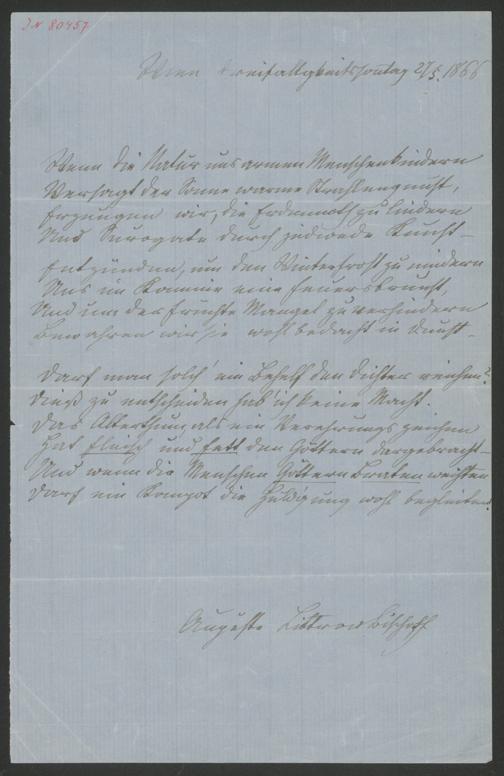 IN 80457
Wien Dreifaltigkeitssontag 27/5. 1866
Wenn die Natur uns armen Menschenkindern
Versagt der Sonne warme Strahlengunst,
Erzeugen wir, die Erdennoth zu lindern
Uns Surogate durch jedwede Kunst –
Entzünden, um den Winterfrost zu mindern
Uns im Kamine eine Feuersbrunst,
Und um der Früchte Mangel zu verhindern
Bewahren wir sie wohlbedacht in Dunst –
Darf man solch' ein Behelf den Dichter reichen?
Dieß zu entscheiden hab' ich keine Macht.
Das Alterthum als ein Verehrungszeichen
Hat Fleisch und Fett den Göttern dargebracht –
Und wenn die Menschen Göttern Braten weihten
Darf ein Kompot die Huldigung wohl begleiten.
Auguste Littrow Bischoff